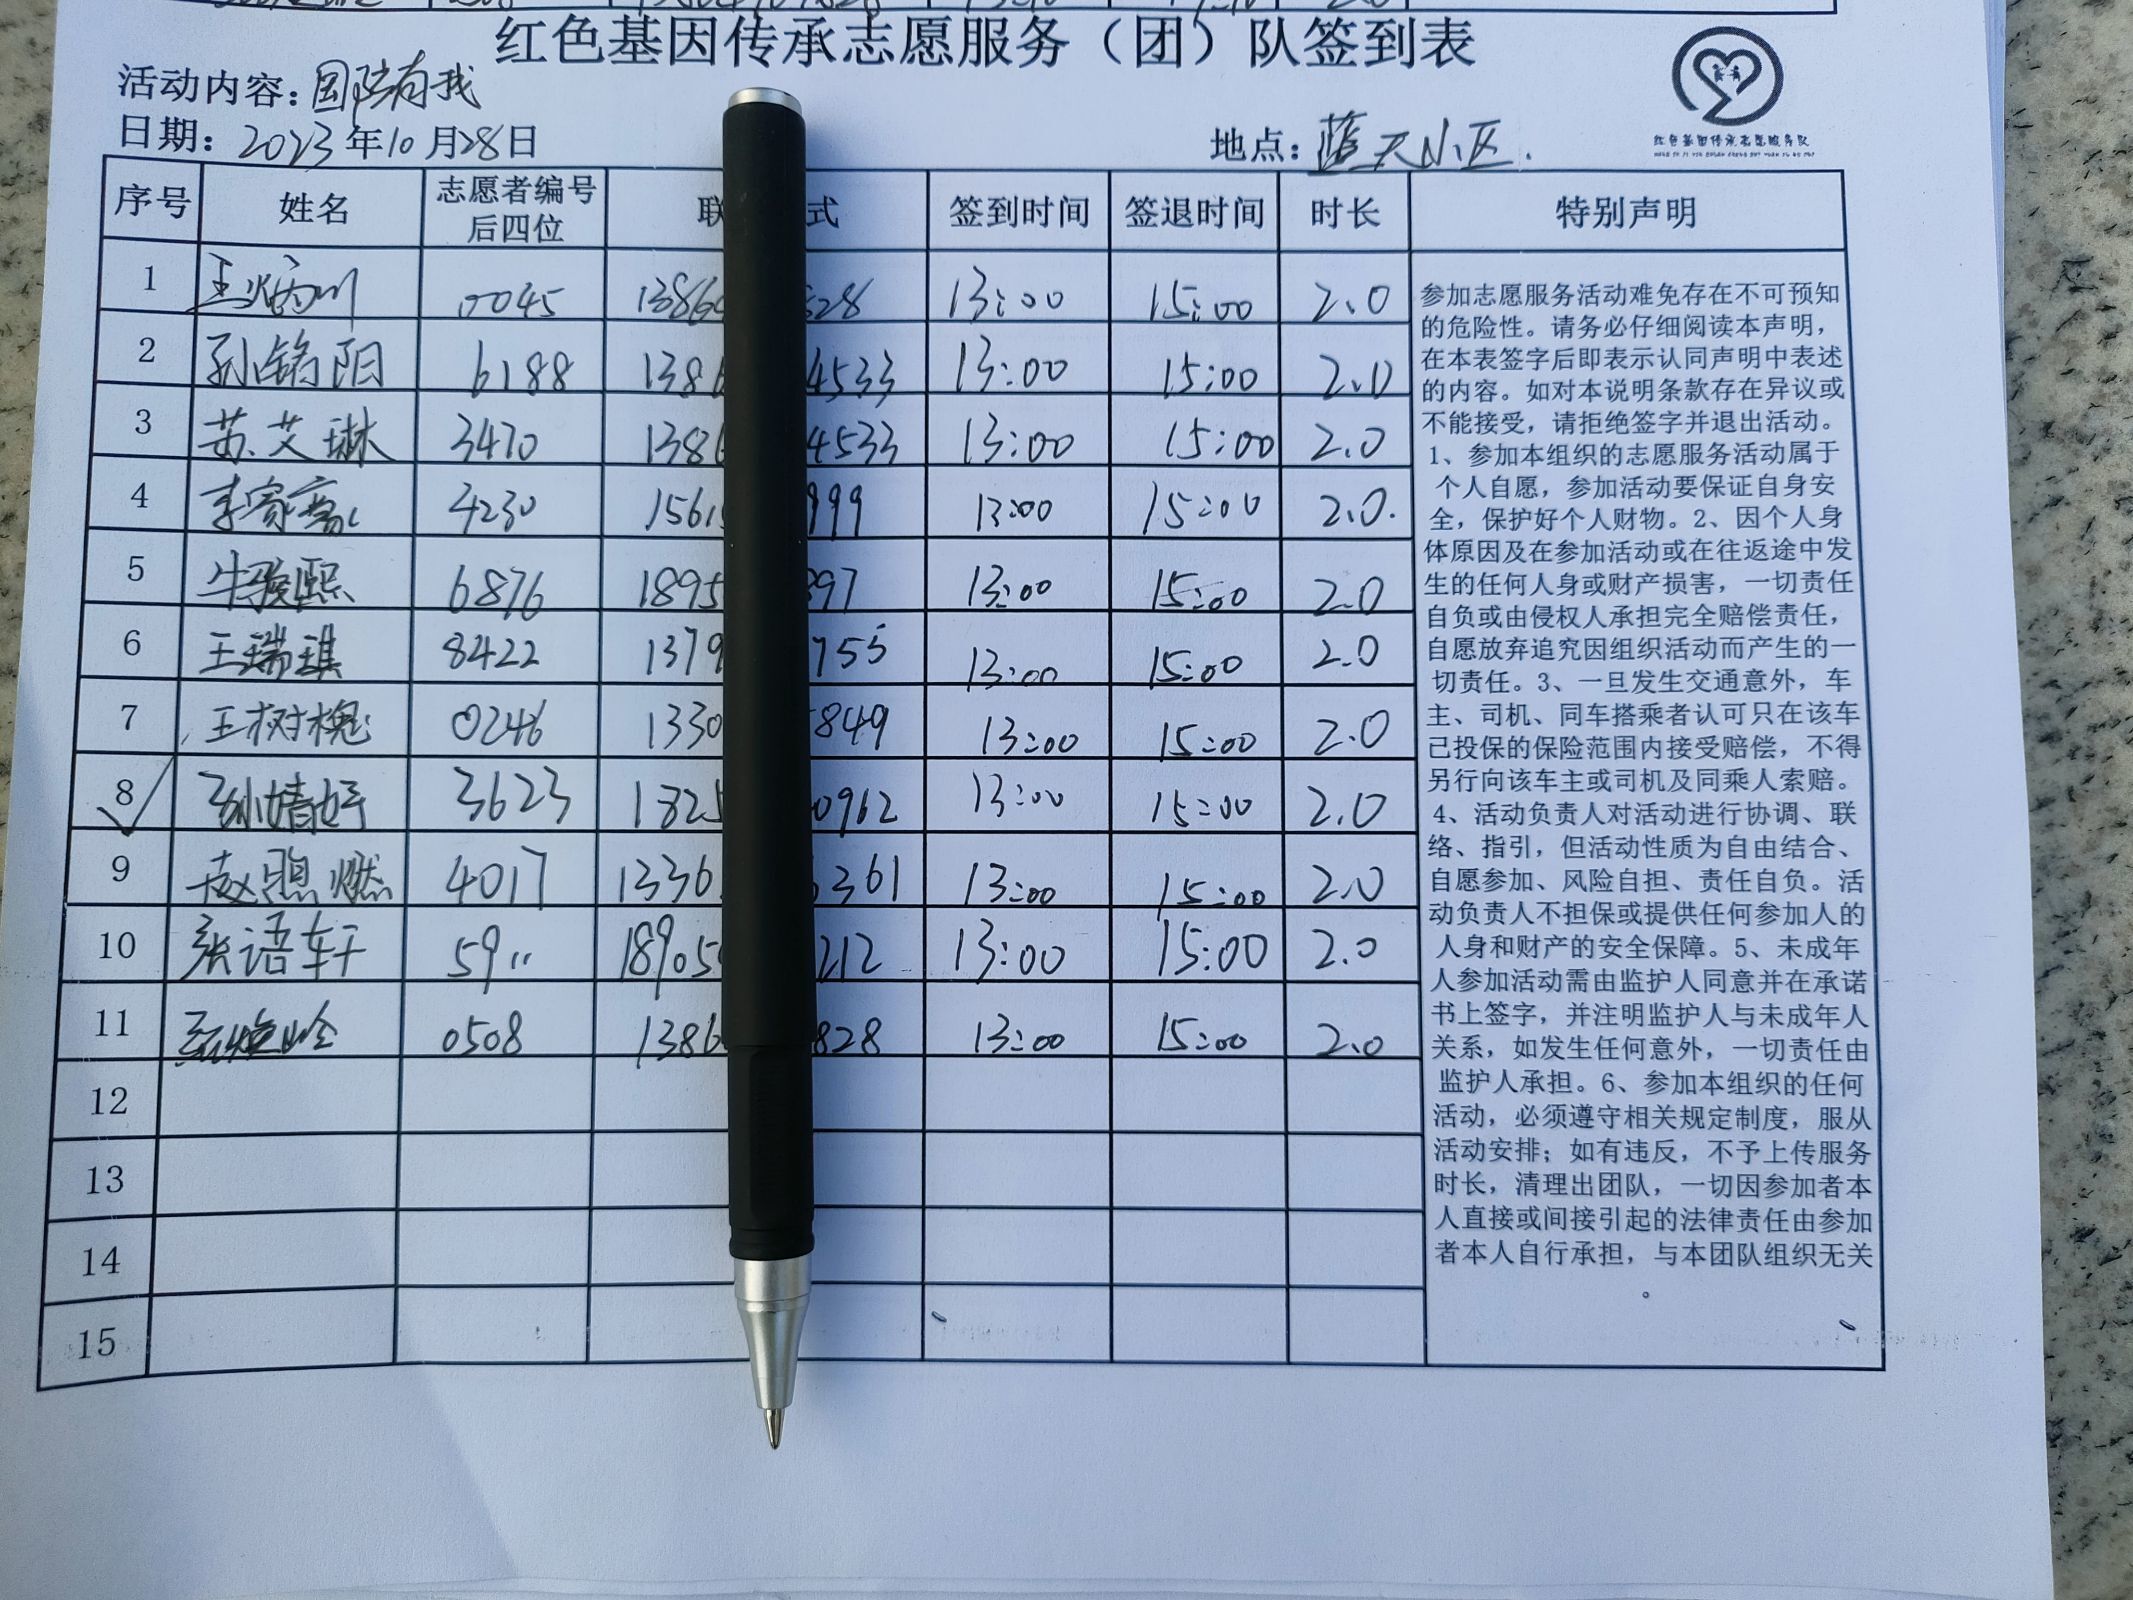 红色基因传承志愿服务（团）队签到表
活动内容：国防有我
日期：2023年10月28日
地点：蓝天小区.
红色基因传承志愿服务队
序号 姓名 志愿者编号后四位 联 式 签到时间 签退时间 时长 特别声明
1 0045 1386 528 13:00 15:00 2.0
2 孙铭阳 6188 138 4533 13:00 15:00 2.0
3 苏艾琳 3470 138 4533 13:00 15:00 2.0
4 4230 1561 999 13:00 15:00 2.0.
5 牛骏熙 6876 1895 397 13:00 15:00 2.0
6 王瑞琪 8422 137 755 13:00 15:00 2.0
7 王树槐 0246 1330 849 13:00 15:00 2.0
8 孙婧妤 3623 1825 0962 13:00 15:00 2.0
9 赵照燃 4017 1336 361 13:00 15:00 2.0
10 张语轩 5911 18905 212 13:00 15:00 2.0
11 0508 1386 828 13:00 15:00 2.0
12
13
14
15
参加志愿服务活动难免存在不可预知
的危险性。请务必仔细阅读本声明，
在本表签字后即表示认同声明中表述
的内容。如对本说明条款存在异议或
不能接受，请拒绝签字并退出活动。
1、参加本组织的志愿服务活动属于
个人自愿，参加活动要保证自身安
全，保护好个人财物。2、因个人身
体原因及在参加活动或在往返途中发
生的任何人身或财产损害，一切责任
自负或由侵权人承担完全赔偿责任，
自愿放弃追究因组织活动而产生的一
切责任。3、一旦发生交通意外，车
主、司机、同车搭乘者认可只在该车
己投保的保险范围内接受赔偿，不得
另行向该车主或司机及同乘人索赔。
4、活动负责人对活动进行协调、联
络、指引，但活动性质为自由结合、
自愿参加、风险自担、责任自负。活
动负责人不担保或提供任何参加人的
人身和财产的安全保障。5、未成年
人参加活动需由监护人同意并在承诺
书上签字，并注明监护人与未成年人
关系，如发生任何意外，一切责任由
监护人承担。6、参加本组织的任何
活动，必须遵守相关规定制度，服从
活动安排；如有违反，不予上传服务
时长，清理出团队，一切因参加者本
人直接或间接引起的法律责任由参加
者本人自行承担，与本团队组织无关
。